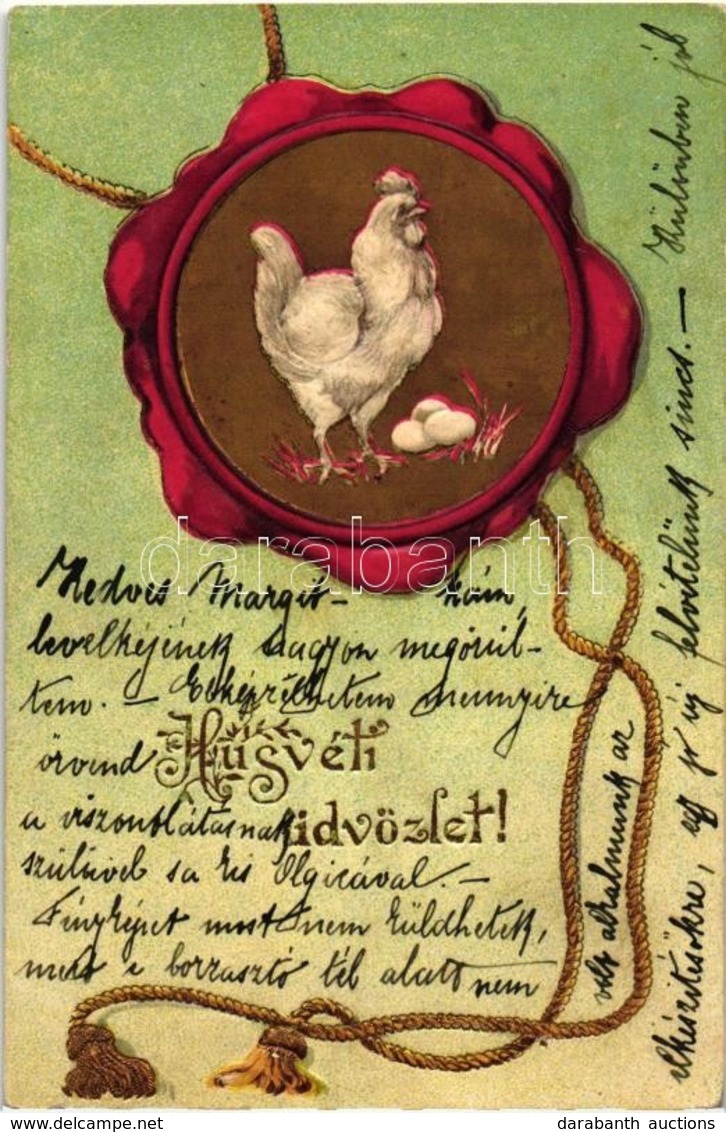 Kedves Margit-kám,
levelkéjének nagyon megörül-
tem. - Elképzelhetem mennyire
örvend
Húsvéti
a viszontlátásnak
üdvözlet!
szüleivel s a kis Olgicával. -
Fényképet most nem küldhetek,
mert e borzasztó tél alatt nem
volt alkalmunk az
elkészítésökre, egy jó új felvételünk sincs. - Különben jól
darabanth
darabanth auctions